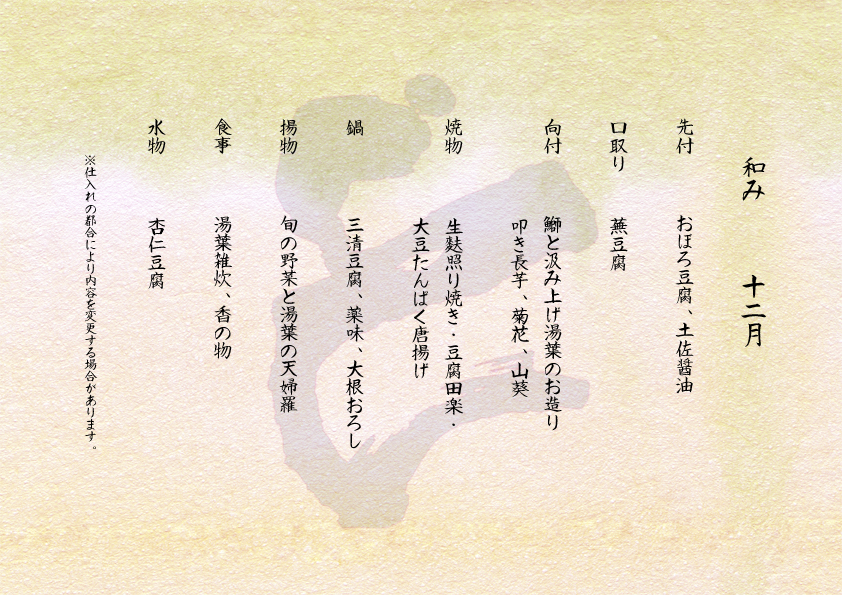 和み　十二月
先付　おぼろ豆腐、土佐醤油
口取り　蕪豆腐
向付　鰤と汲み上げ湯葉のお造り
叩き長芋、菊花、山葵
焼物　生麩照り焼き・豆腐田楽・
大豆たんぱく唐揚げ
鍋　三清豆腐、薬味、大根おろし
揚物　旬の野菜と湯葉の天婦羅
食事　湯葉雑炊、香の物
水物　杏仁豆腐
※仕入れの都合により内容を変更する場合があります。